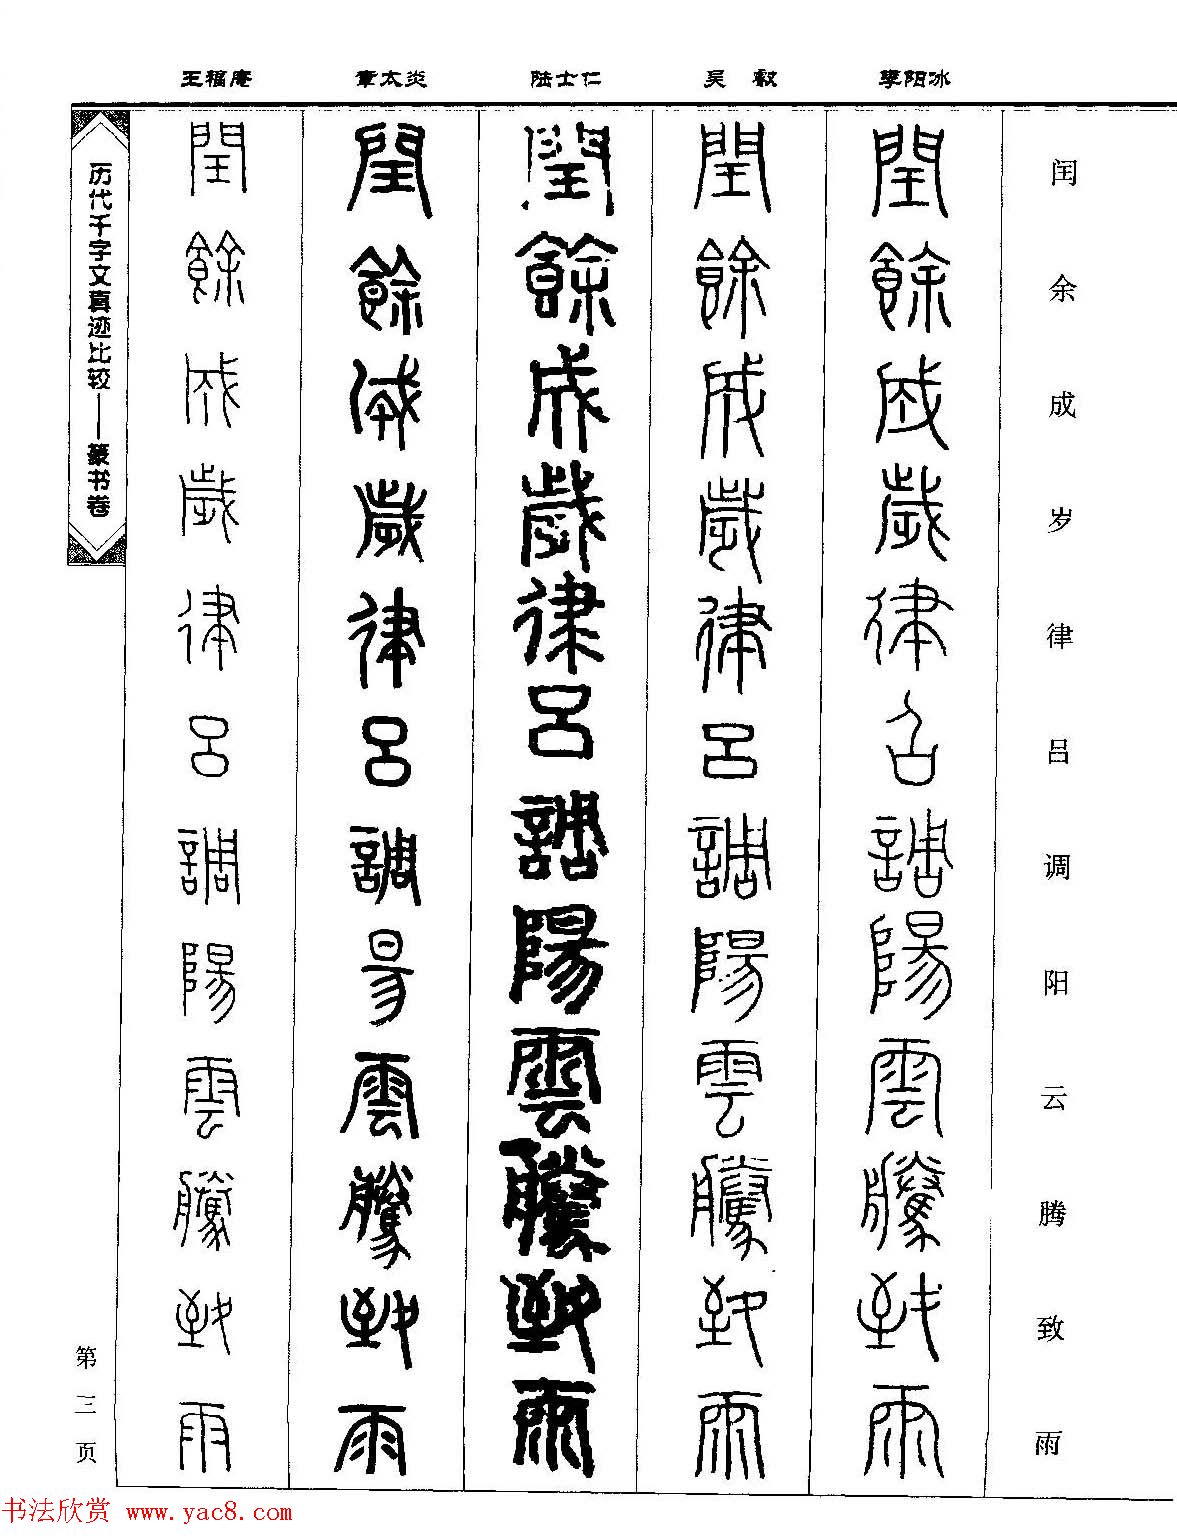 王福庵 章太炎 陆士仁 吴 叡 李阳冰
闰余成岁律吕调阳云腾致雨
閏餘成歲律呂調陽雲騰致雨
閏餘成歲律呂調陽雲騰致雨
閏餘成歲律呂調陽雲騰致雨
閏餘成歲律呂調昜雲騰致雨
閏餘成歲律呂調陽雲騰致雨
历代千字文真迹比较——篆书卷
第三页
书法欣赏 www.yac8.com